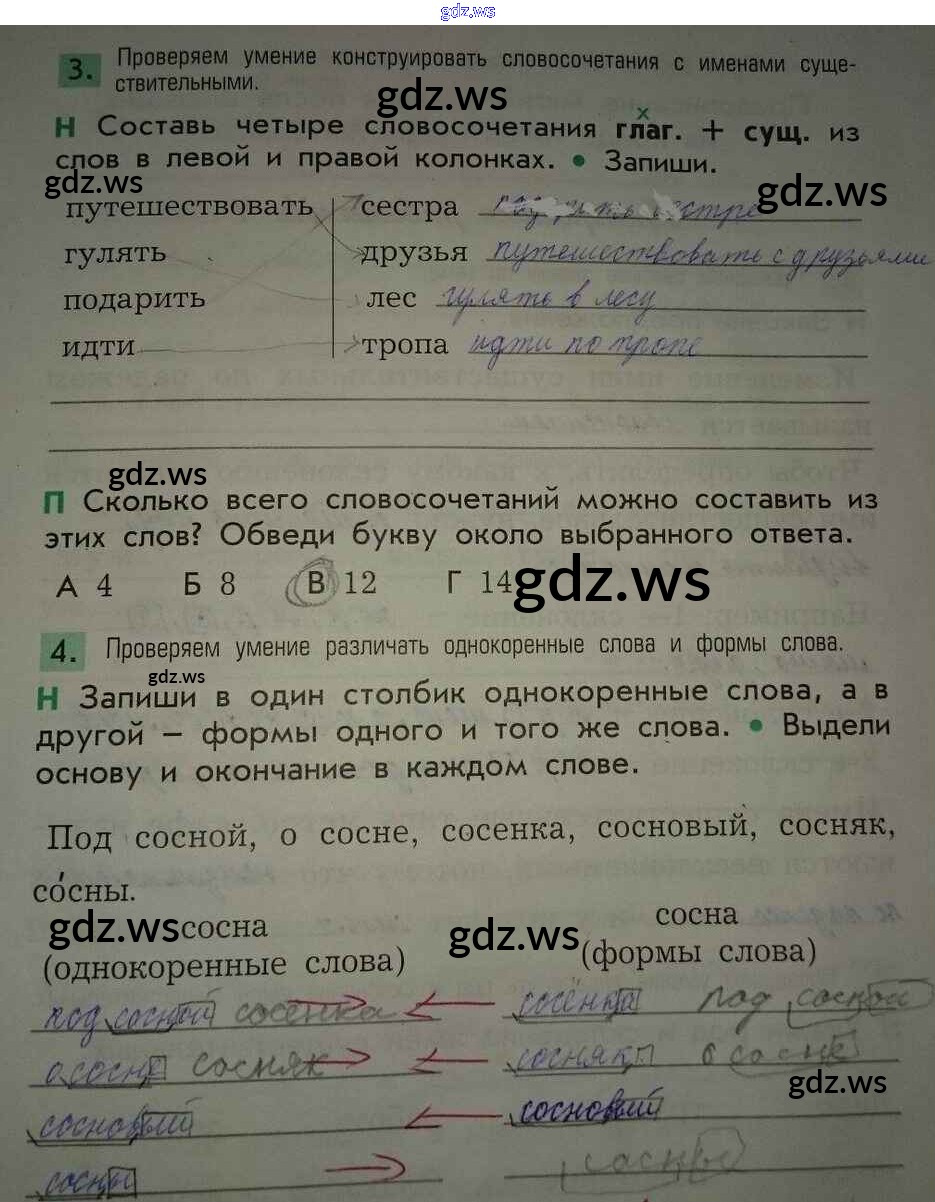 gdz.ws
3. Проверяем умение конструировать словосочетания с именами суще-
ствительными.
gdz.ws
х
Н Составь четыре словосочетания глаг. + сущ. из
слов в левой и правой колонках. • Запиши.
gdz.ws gdz.ws
путешествовать сестра подарить сестре
гулять друзья путешествовать с друзьями
подарить лес гулять в лесу
идти тропа идти по тропе
gdz.ws
П Сколько всего словосочетаний можно составить из
этих слов? Обведи букву около выбранного ответа.
А 4 Б 8 В 12 Г 14
gdz.ws
4. Проверяем умение различать однокоренные слова и формы слова.
gdz.ws
Н Запиши в один столбик однокоренные слова, а в
другой – формы одного и того же слова. • Выдели
основу и окончание в каждом слове.
Под сосной, о сосне, сосенка, сосновый, сосняк,
со́сны.
gdz.ws сосна gdz.ws сосна
(однокоренные слова) (формы слова)
под сосной сосенка сосёнка под сосной
о сосне сосняк сосняк о сосне
gdz.ws
сосновый сосновый
сосны сосны